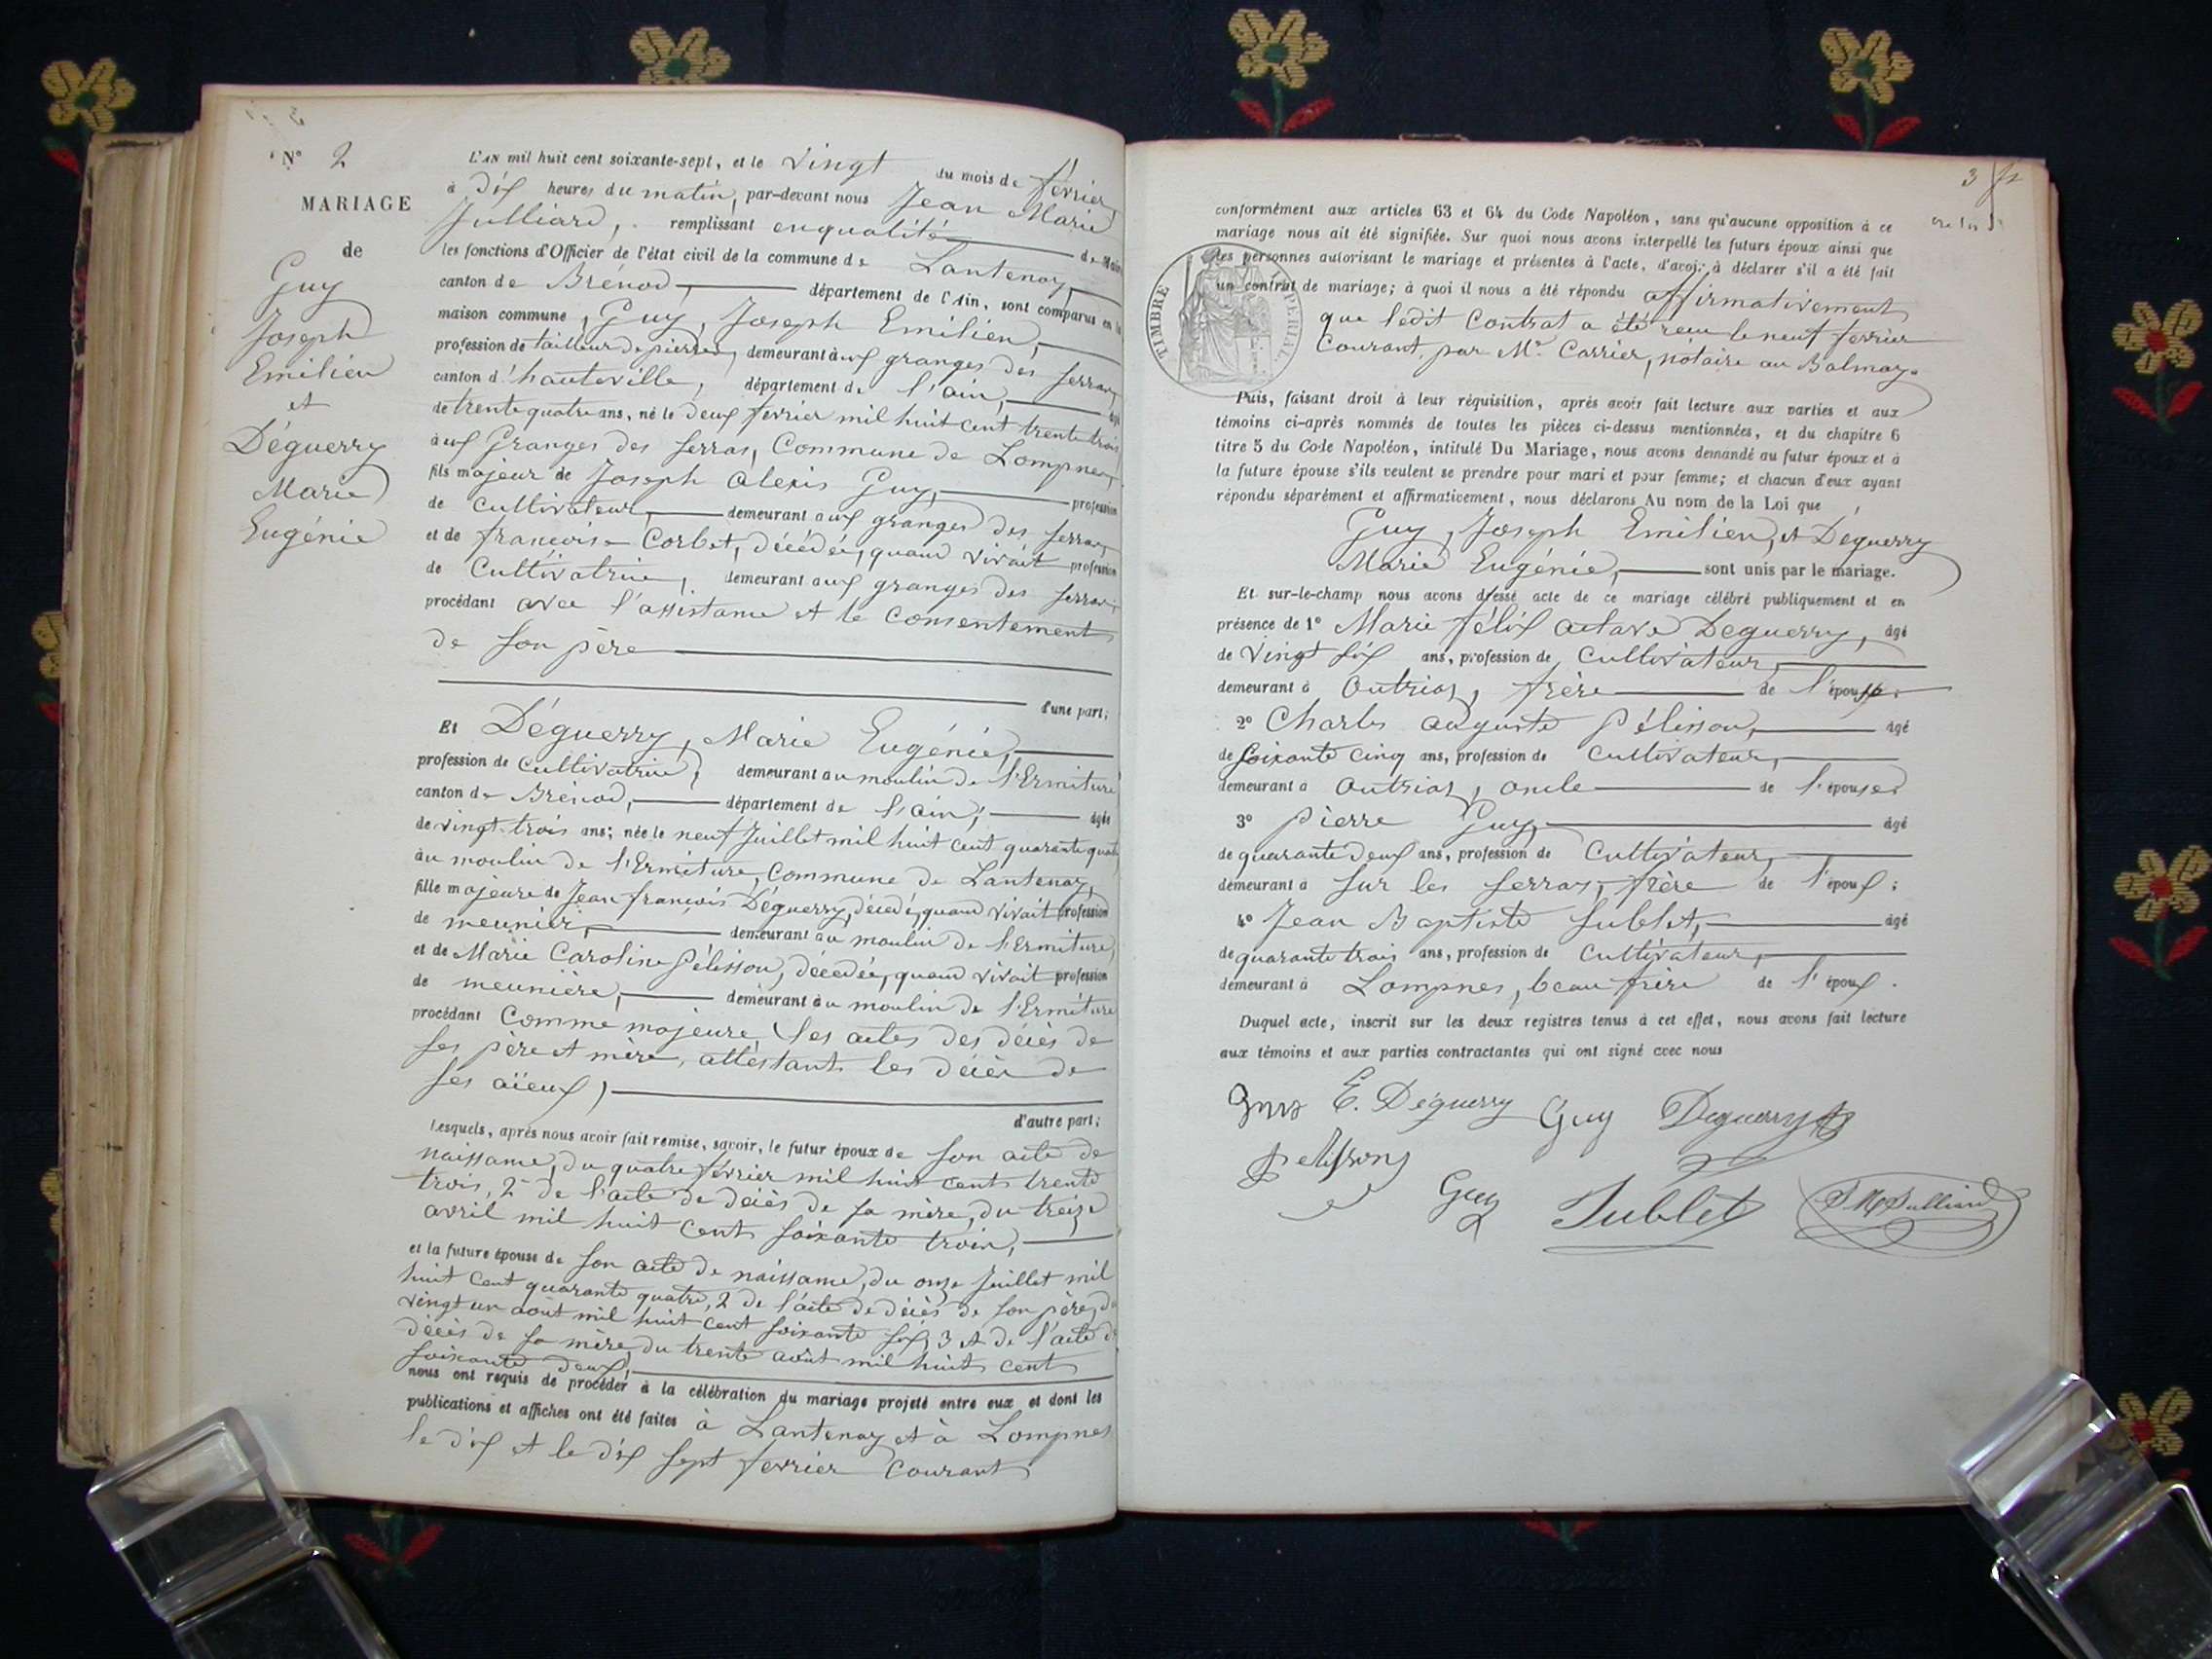 N° 2
MARIAGE
de
Guy
Joseph
Emilien
et
Déguerry
Marie
Eugénie
L'AN mil huit cent soixante-sept, et le vingt du mois de février
à dix heures du matin, par-devant nous Jean Marie
Julliard, remplissant en qualité de Maire
les fonctions d'Officier de l'état civil de la commune de Lantenay,
canton de Brénod, département de l'Ain, sont comparus en la
maison commune, Guy, Joseph Emilien,
profession de tailleur de pierres, demeurant aux granges des ferras,
canton d'hauteville, département de l'ain, âgé
de trente quatre ans, né le deux février mil huit cent trente trois
aux Granges des ferras, Commune de Lompnes,
fils majeur de Joseph Alexis Guy, profession
de cultivateur, demeurant aux granges des ferras,
et de françoise Corbet, décédée, quand vivait profession
de Cultivatrice, demeurant aux granges des ferras,
procédant avec l'assistance et le consentement
de son père
d'une part;
Et Déguerry, Marie Eugénie,
profession de cultivatrice, demeurant au moulin de l'Ermiture
canton de Brénod, département de l'ain, âgée
de vingt-trois ans; née le neuf Juillet mil huit cent quarante quatre
au moulin de l'Ermiture, Commune de Lantenay,
fille majeure de Jean françois Déguerry, décédé, quand vivait profession
de meunier, demeurant au moulin de l'Ermiture
et de Marie Caroline Pélisson, décédée, quand vivait profession
de meunière, demeurant au moulin de l'Ermiture
procédant Comme majeure (les actes des décès de
ses père et mère, attestant les décès de
ses aïeux)
d'autre part;
Lesquels, après nous avoir fait remise, savoir, le futur époux de son acte de
naissance, du quatre février mil huit cent trente
trois, 2° de l'acte de décès de sa mère, du treize
avril mil huit cent soixante trois,
et la future épouse de son acte de naissance, du onze Juillet mil
huit cent quarante quatre, 2 de l'acte de décès de son père, du
vingt un août mil huit cent soixante six, 3 et de l'acte de
décès de sa mère, du trente août mil huit cent
soixante deux,
nous ont requis de procéder à la célébration du mariage projeté entre eux et dont les
publications et affiches ont été faites à Lantenay et à Lompnes
le dix et le dix sept février courant
3
conformément aux articles 63 et 64 du Code Napoléon, sans qu'aucune opposition à ce
mariage nous ait été signifiée. Sur quoi nous avons interpellé les futurs époux ainsi que
les personnes autorisant le mariage et présentes à l'acte, d'avoir à déclarer s'il a été fait
un contrat de mariage; à quoi il nous a été répondu affirmativement
que ledit Contrat a été reçu le neuf février
Courant, par Me Carrier, notaire au Balmay.
TIMBRE IMPERIAL
Puis, faisant droit à leur réquisition, après avoir fait lecture aux parties et aux
témoins ci-après nommés de toutes les pièces ci-dessus mentionnées, et du chapitre 6
titre 5 du Code Napoléon, intitulé Du Mariage, nous avons demandé au futur époux et à
la future épouse s'ils veulent se prendre pour mari et pour femme; et chacun d'eux ayant
répondu séparément et affirmativement, nous déclarons Au nom de la Loi que
Guy, Joseph Emilien, et Déguerry
Marie Eugénie, sont unis par le mariage.
Et sur-le-champ nous avons dressé acte de ce mariage célébré publiquement et en
présence de 1° Marie félix octave Deguerry, âgé
de vingt six ans, profession de cultivateur,
demeurant à Outriaz, frère de l'épouse.
2° Charles auguste Pélisson, âgé
de soixante cinq ans, profession de cultivateur,
demeurant à Outriaz, oncle de l'épouse
3° Pierre Guy, âgé
de quarante deux ans, profession de Cultivateur,
demeurant à sur les ferras, frère de l'époux;
4° Jean Baptiste Sublet, âgé
de quarante trois ans, profession de Cultivateur,
demeurant à Lompnes, beau frère de l'époux.
Duquel acte, inscrit sur les deux registres tenus à cet effet, nous avons fait lecture
aux témoins et aux parties contractantes qui ont signé avec nous
Guy E. Déguerry Guy Deguerry
Pelisson
Guy Sublet J M Julliard